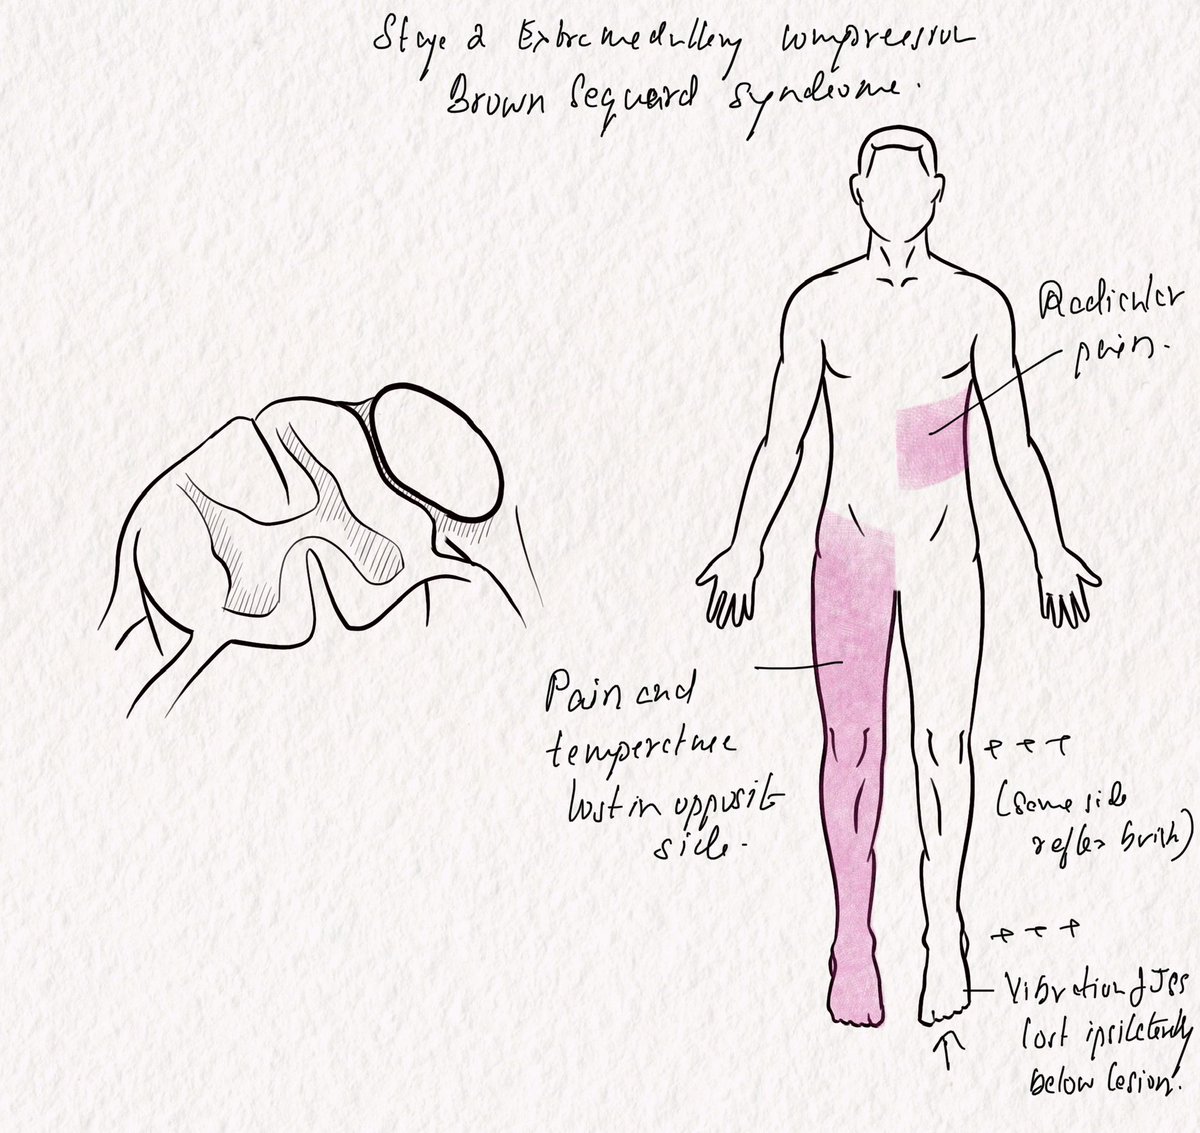 Stage 2 Extramedullary compression
Brown Sequard syndrome.
Radicular
pain.
Pain and
temperature
lost in opposite
side.
+ + +
(same side
reflex brisk)
+ + +
Vibration & JPS
lost ipsilaterally
below lesion.